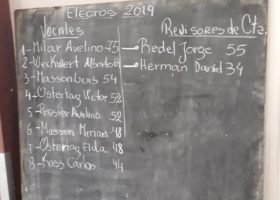 Electos 2019
Vocales
1-Milar Avelino-75
2-Weckwert Alberto 61
3-Masson Luis 54
4-Ostertag Victor 52
5-Prosier Avelino 52
6-Masson Miriam 48
7-Ostertag Elda 48
8-Kass Carlos 44
Revisores de Cta.
Redel Jorge 55
Herman Daniel 34